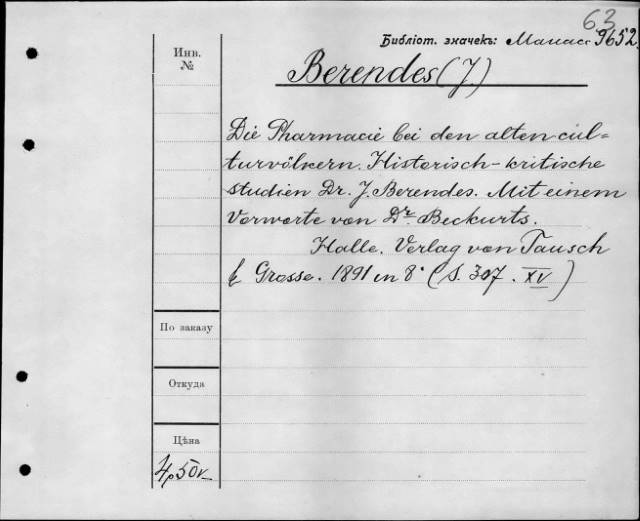 63
Библіот. значекъ: Манасс 9652
Инв.
№
Berendes (J)
Die Pharmacie bei den alten cul-
turvölkern. Historisch-kritische
studien Dr. J. Berendes. Mit einem
Vorworte von Dr. Beckurts.
Halle. Verlag von Tausch
& Grosse. 1891 in 8° (S. 307. XV)
По заказу
Откуда
Цѣна
4р50к